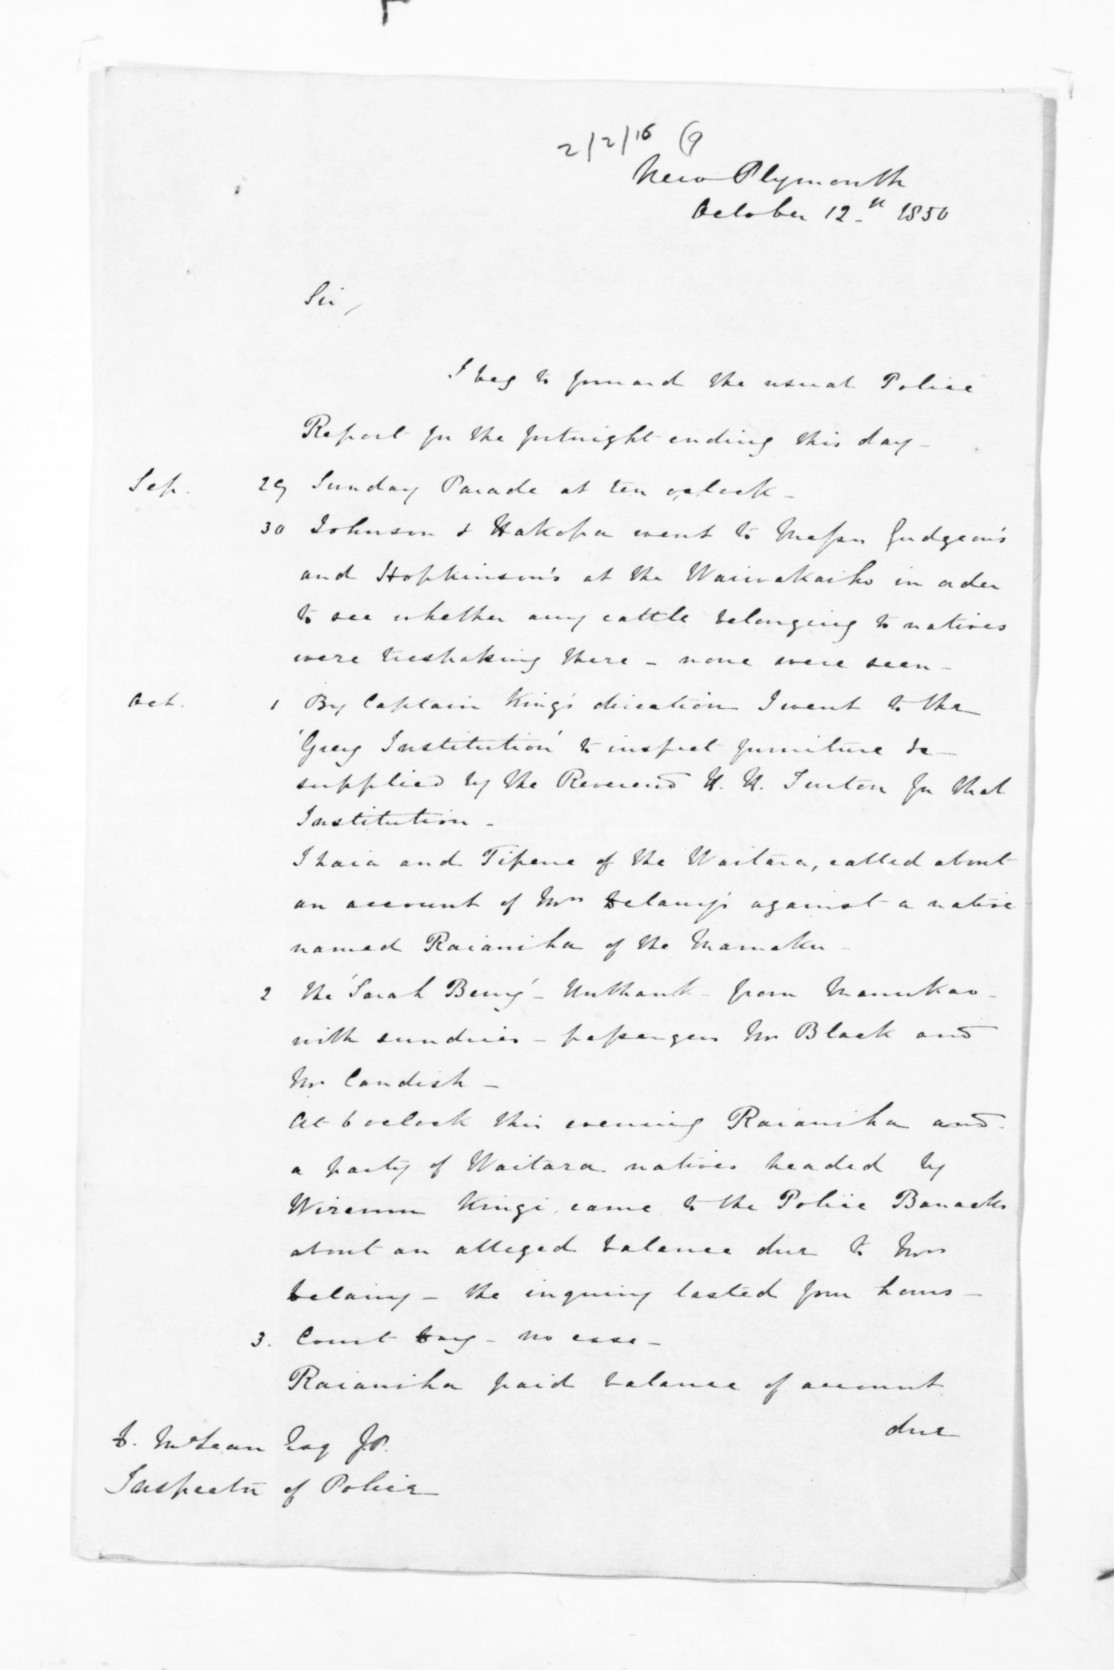 2/2/16 (9
New Plymouth
October 12th 1850
Sir,
I beg to forward the usual Police
Report for the fortnight ending this day -
Sep. 29 Sunday Parade at ten oclock -
30 Johnson & Hakopa went to Messrs Gudgeon's
and Hopkinson's at the Waiwakaiho in order
to see whether any cattle belonging to natives
were trespassing there - none were seen -
Oct. 1 By Captain King's direction I went to the
'Grey Institution' to inspect furniture &c
supplied by the Reverend H. H. Turton for that
Institution -
Ihaia and Tipene of the Waitara, called about
an account of Mrs Delany's against a native
named Raianiha of the Mamaku -
2 The 'Sarah Berry' - Unthank - from Manukao -
with sundries - passengers Mr Black and
Mr Candish -
At 6 oclock this evening Raianiha and
a party of Waitara natives headed by
Wiremu Kingi came to the Police Barracks
about an alleged balance due to Mrs
Delany - the inquiry lasted four hours -
3. Court Day - no case -
Raianiha paid balance of account
due
D. McLean Esq J.P.
Inspector of Police